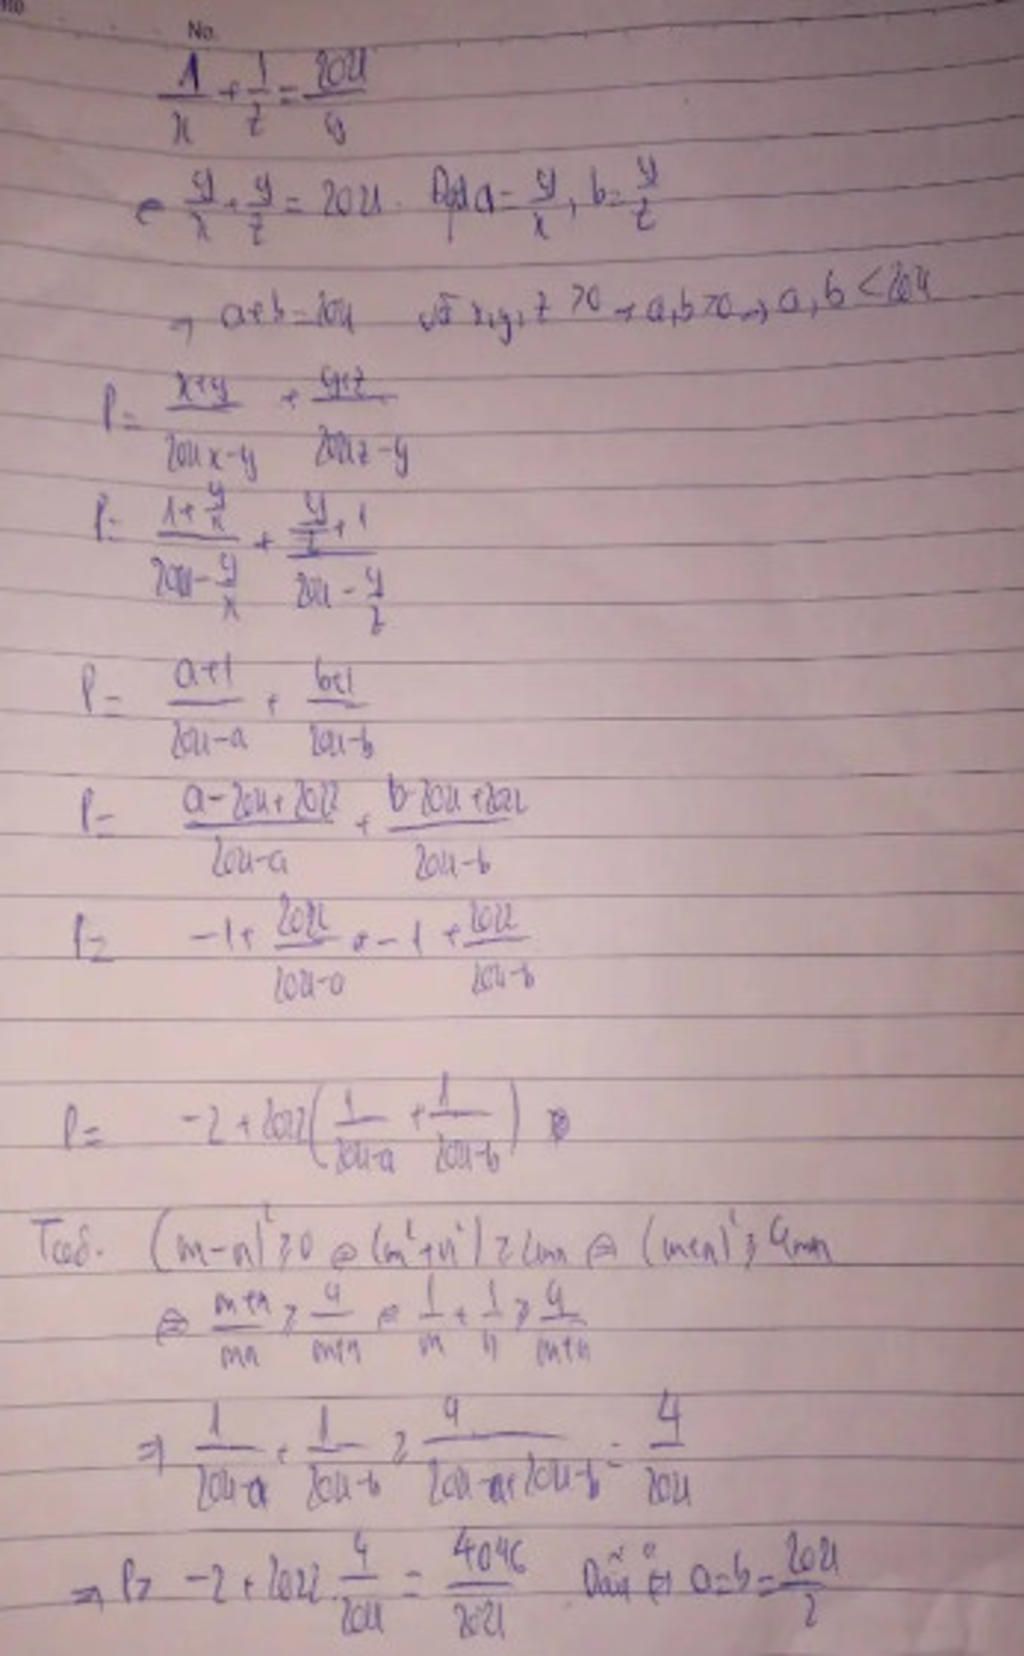 No.
1/x + 1/z = 2021/y
⇔ y/x + y/z = 2021. Đặt a = y/x, b = y/z
→ a+b = 2021 vì x, y, z >0 → a,b>0 → a, b < 2021
P = (x+y)/(2021x-y) + (y+z)/(2021z-y)
P = (1+y/x)/(2021-y/x) + (y/z+1)/(2021-y/z)
P = (a+1)/(2021-a) + (b+1)/(2021-b)
P = (a-2021+2022)/(2021-a) + (b-2021+2022)/(2021-b)
P = -1+ 2022/(2021-a) + -1 + 2022/(2021-b)
P = -2 + 2022(1/(2021-a) + 1/(2021-b))
(m-n)² ≥ 0 ⇔ (m²+n²) ≥ 2mn ⇔ (m+n)² ≥ 4mn
⇔ (m+n)/mn ≥ 4/(m+n) ⇔ 1/m + 1/n ≥ 4/(m+n)
⇒ 1/(2021-a) + 1/(2021-b) ≥ 4/(2021-a+2021-b) = 4/2021
⇒ P ≥ -2 + 2022 . 4/2021 = 4046/2021 Dấu a=b = 2021/2